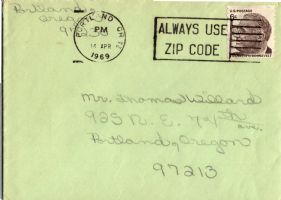 Portland,
Oreg
972
PORTLAND OR 972
PM
14 APR
1969
ALWAYS USE
ZIP CODE
U.S. POSTAGE
6c
Mr. Thomas Willard
925 N.E. 74th
ave.
Portland, Oregon
97213